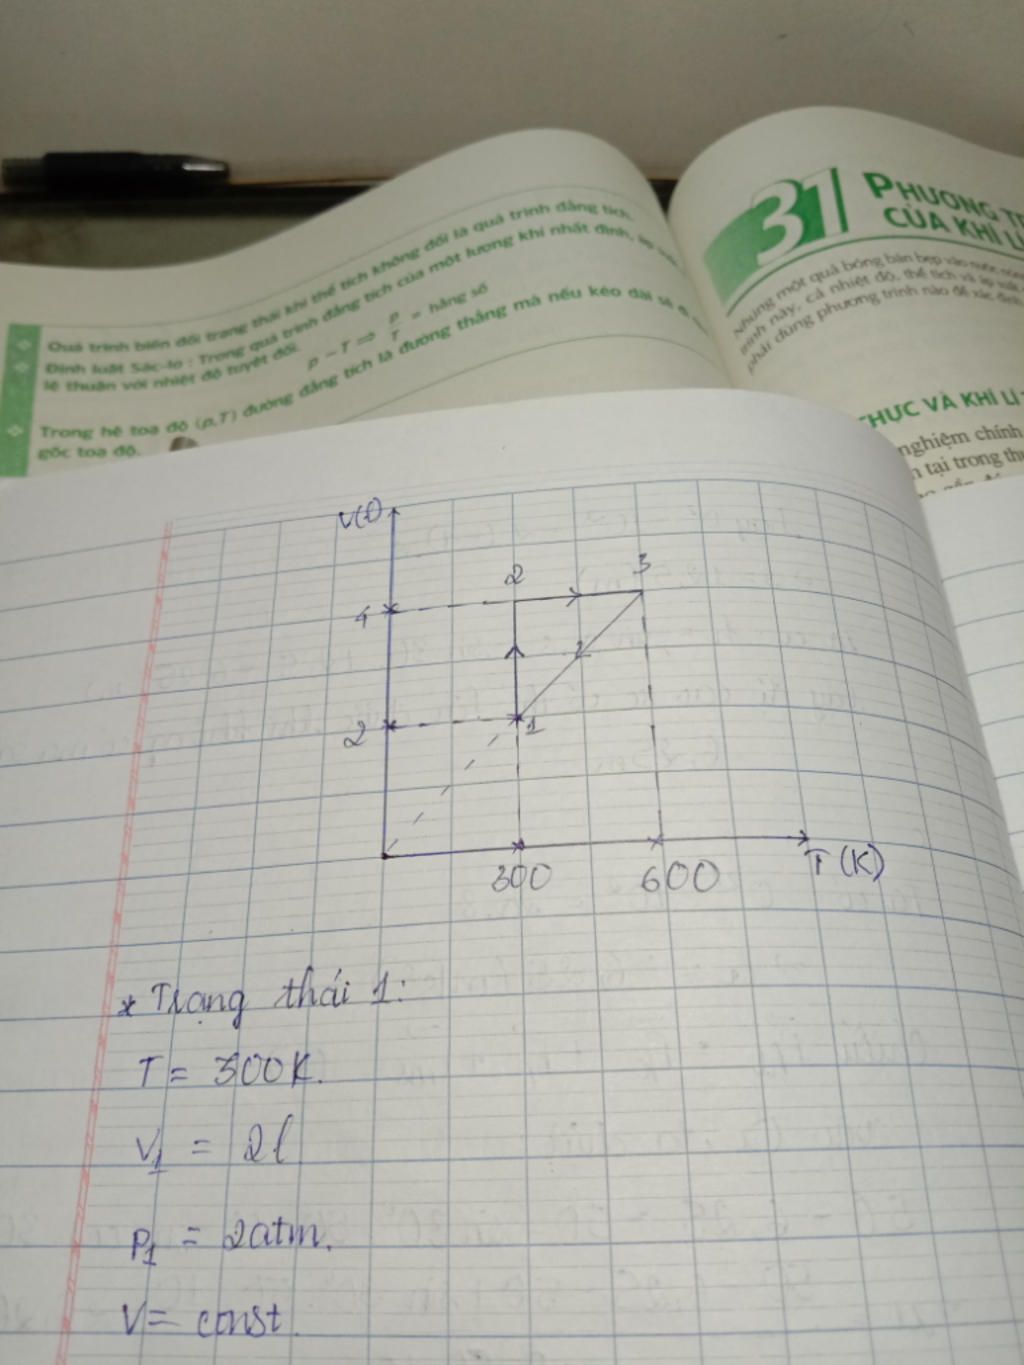 Quá trình biến đổi trạng thái khi thể tích không đổi là quá trình đẳng tích.
Định luật Sác-lơ : Trong quá trình đẳng tích của một lượng khí nhất định, áp
lệ thuận với nhiệt độ tuyệt đối.
p ~ T ⇒ p/T = hằng số
Trong hệ toạ độ (p,T) đường đẳng tích là đường thẳng mà nếu kéo dài sẽ đi
gốc toạ độ.
31
PHƯƠNG TR
CỦA KHÍ L
Nhúng một quả bóng bàn bẹp vào nước
trình này, cả nhiệt độ, thể tích và áp suất
phải dùng phương trình nào để xác định
THỰC VÀ KHÍ LÍ
nghiệm chính
tại trong th
V(l)
2
3
4
2
1
300
600
T (K)
* Trạng thái 1:
T = 300K.
V1 = 2l
P1 = 2atm.
V = const